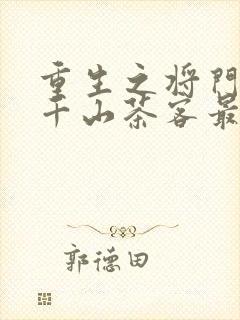 重生之将门
千山茶客最
郭德田